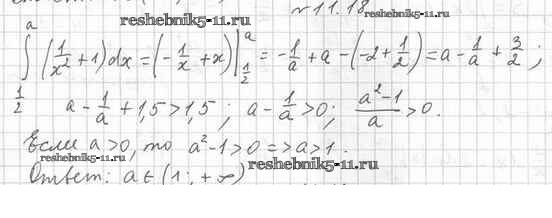 №11.18.
reshebnik5-11.ru
∫_{1/2}^{a} (1/x² + 1)dx = (-1/x + x)|_{1/2}^{a} = -1/a + a - (-2 + 1/2) = a - 1/a + 3/2;
a - 1/a + 1,5 > 1,5; a - 1/a > 0; (a² - 1)/a > 0.
Если a > 0, то a² - 1 > 0 => a > 1.
reshebnik5-11.ru reshebnik5-11.ru
Ответ: a ∈ (1; +∞)